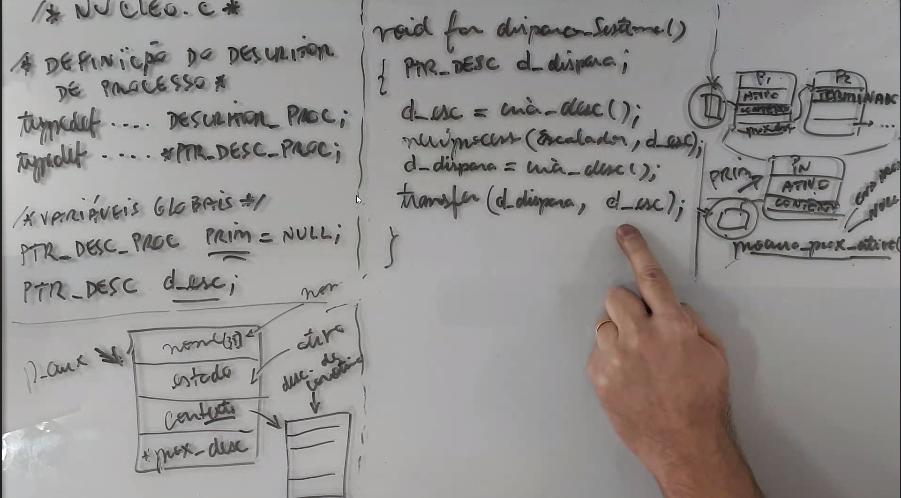 /* NUCLEO.C *
* DEFINIÇÃO DO DESCRITOR
DE PROCESSO *
typedef .... DESCRITOR_PROC;
typedef .... *PTR_DESC_PROC;
/* VARIÁVEIS GLOBAIS */
PTR_DESC_PROC PRIM = NULL;
PTR_DESC d_esc;
p_aux
nome[35]
estado
contexto
*prox_desc
ativo
desc. de
void far dispara_sistema()
{ PTR_DESC d_dispara;
d_esc = cria_desc();
newprocess (escalador, d_esc);
d_dispara = cria_desc();
transfer (d_dispara, d_esc);
}
P1
ATIVO
P2
...
PRIM
PN
ATIVO
NULL
procura_prox_ativo(